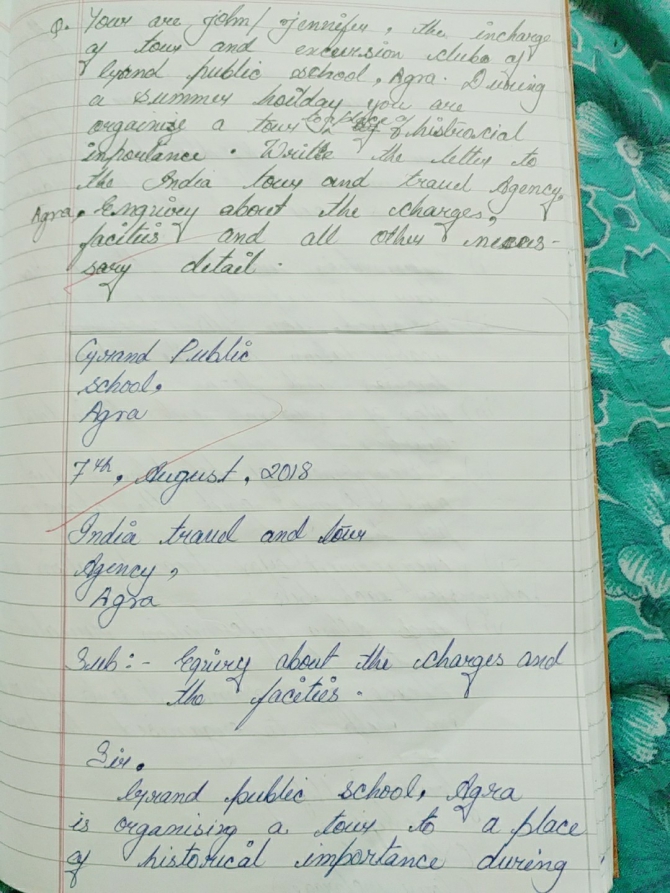 Q. Your are john/ jennifer, the incharge
of tour and excursion clubs of
Grand public school, Agra. During
a summer hoilday you are
organize a tour to place of histroical
importance. Write the letter to
the India tour and travel Agency,
Agra. Enquiry about the charges,
facities and all other neces-
sary detail.
Grand Public
school,
Agra
7th, August, 2018
India travel and tour
Agency,
Agra
Sub:- Equiry about the charges and
the facities.
Sir.
Grand public school, Agra
is organising a tour to a place
of historical importance during